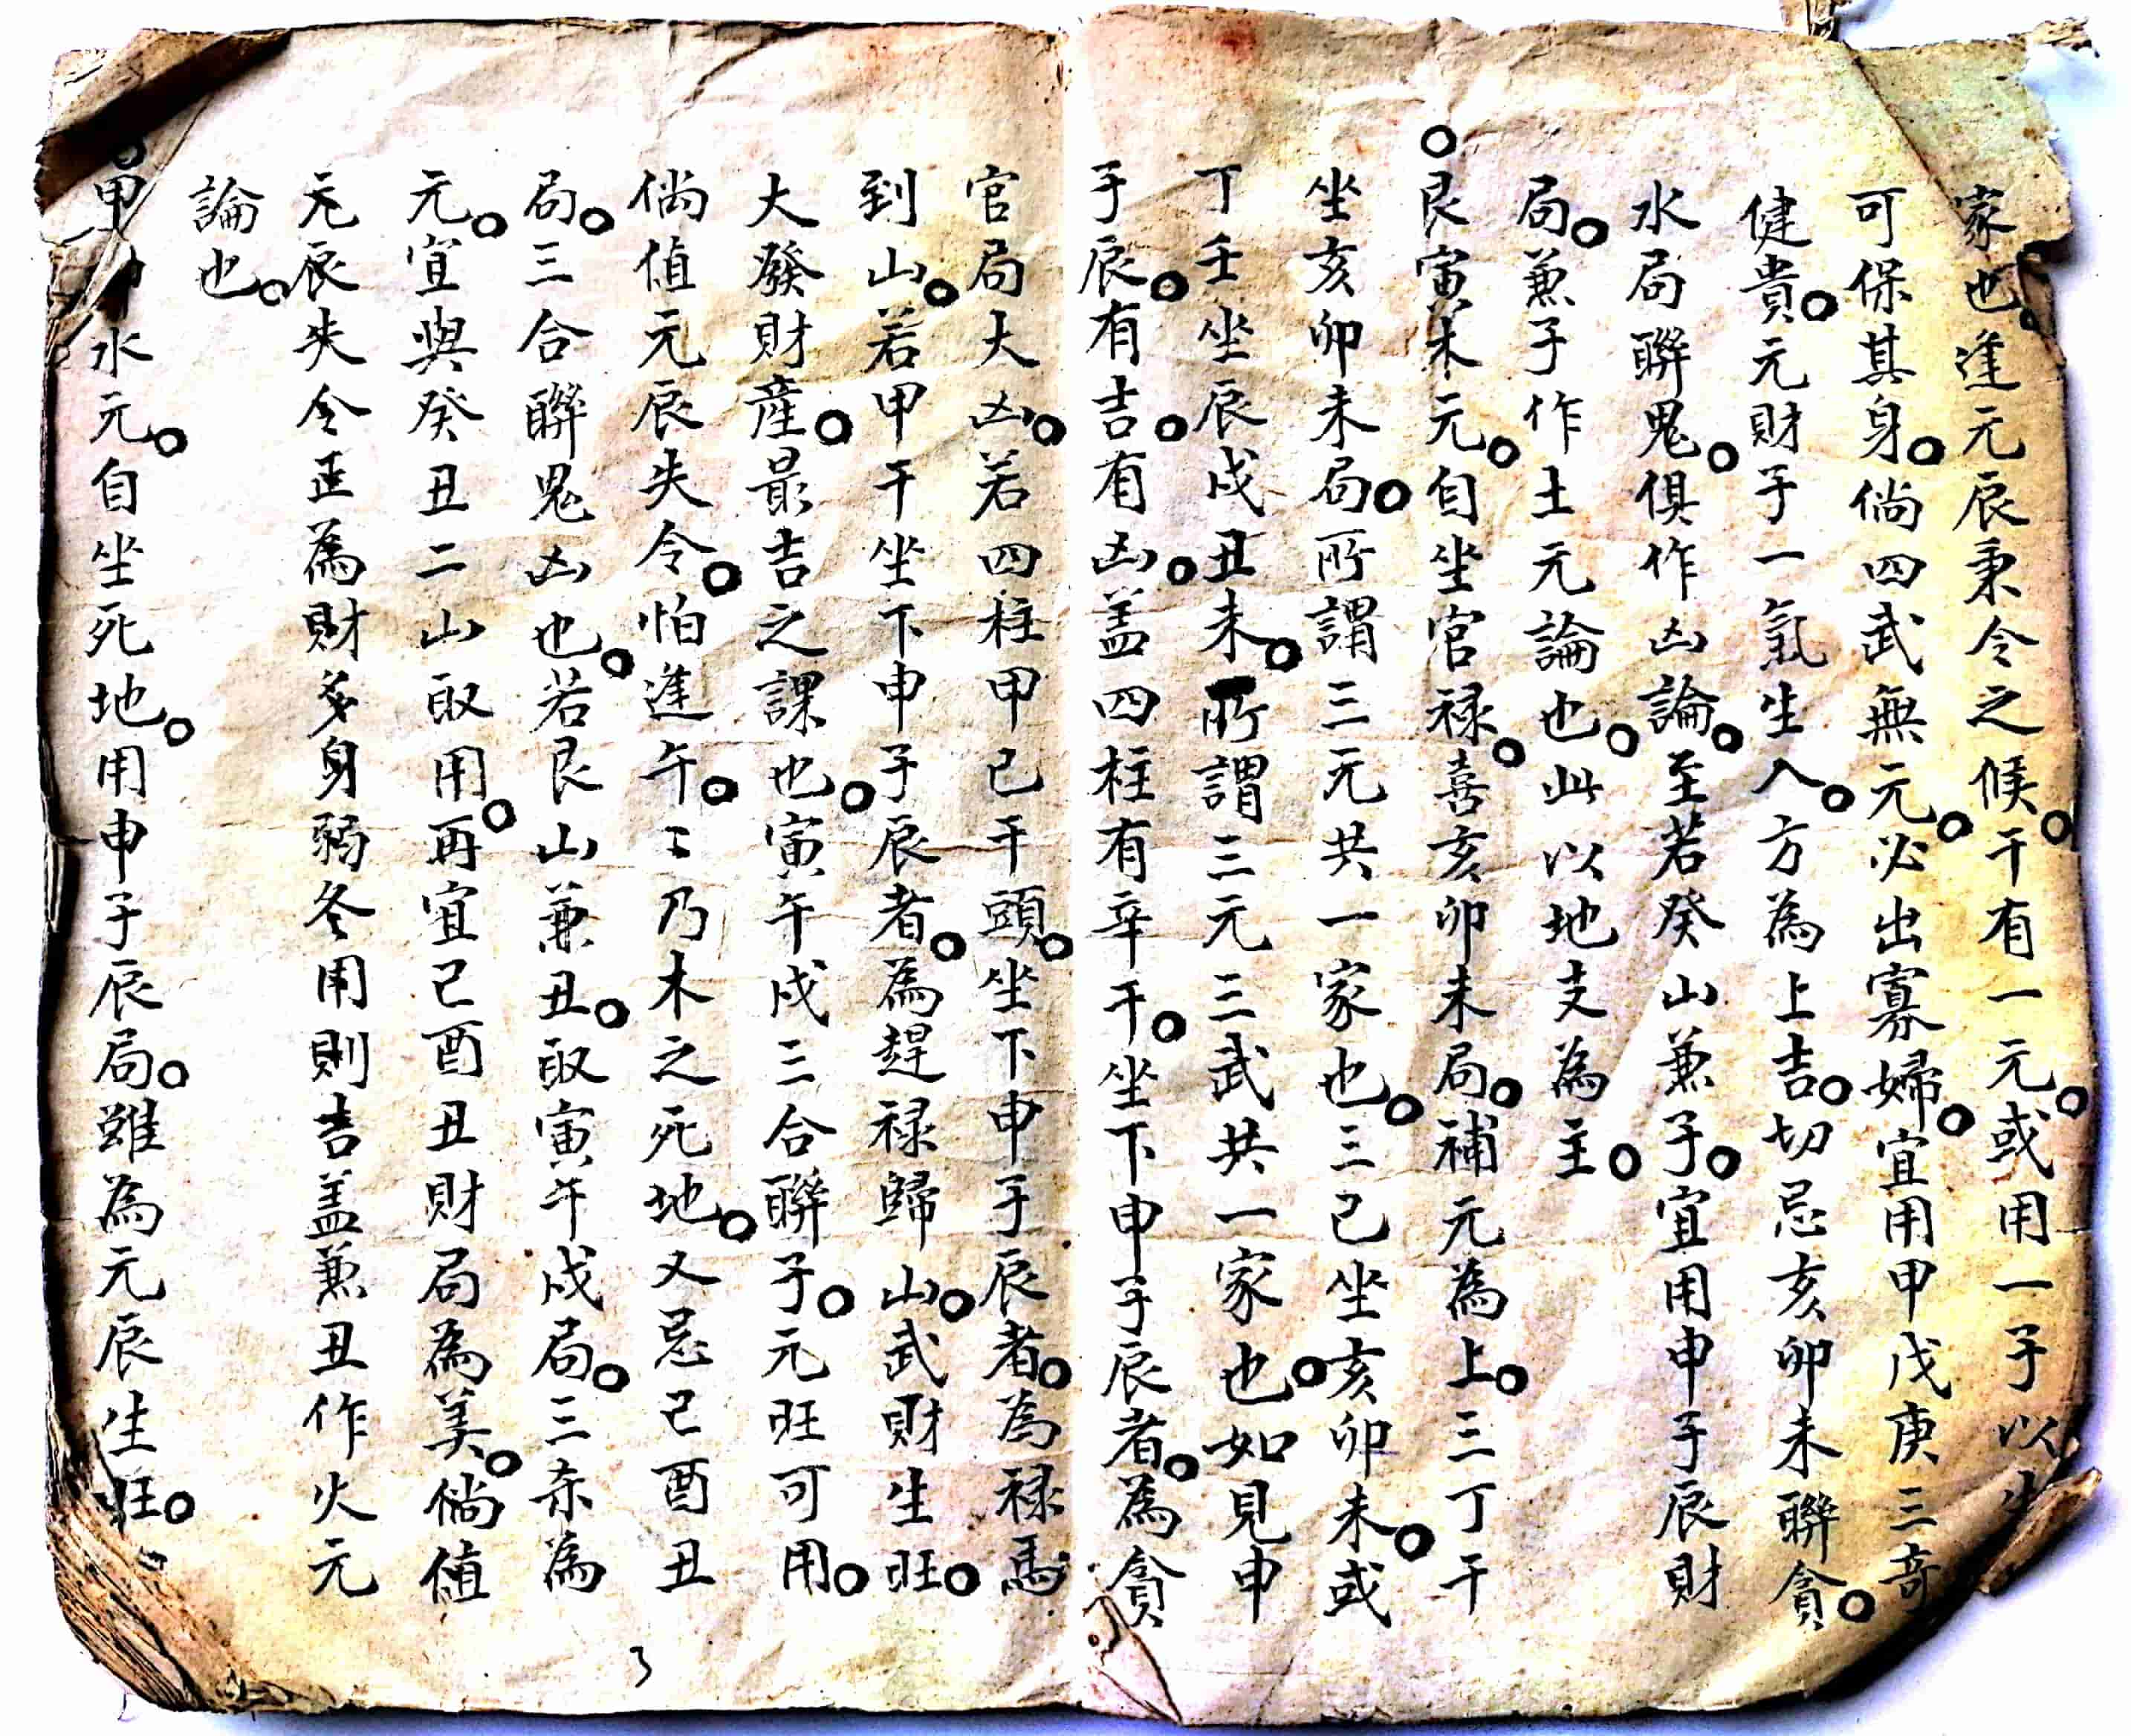 家也。進元辰秉令之候。干有一元。或用一子以生
可保其身。倘四武無元。必出寡婦。宜用甲戊庚三奇
健貴。元財子一氣生入。方為上吉。切忌亥卯未聯貪。
水局聯鬼。俱作凶論。至若癸山兼子。宜用申子辰財
局。兼子作土元論也。此以地支為主。
○艮寅木元。自坐官禄。喜亥卯未局。補元為上。三丁干
坐亥卯未局。所謂三元共一家也。三己坐亥卯未。或
丁壬坐辰戌丑未。所謂三元三武共一家也。如見申
子辰。有吉。有凶。盖四柱有辛干。坐下申子辰者。為貪
官局大凶。若四柱甲己干頭。坐下申子辰者。為禄馬
到山。若甲干坐下申子辰者。為趕禄歸山。武財生旺。
大發財產。最吉之課也。寅午戌三合聯子。元旺可用。
倘值元辰失令。怕進午。〻乃木之死地。又忌己酉丑
局。三合聯鬼凶也。若艮山兼丑。取寅午戌局。三奈為
元。宜與癸丑二山取用。再宜己酉丑財局為美。倘值
元辰失令正為財多身弱冬用則吉盖兼丑作火元
論也。
○甲 水元。自坐死地。用申子辰局。雖為元辰生旺。
3